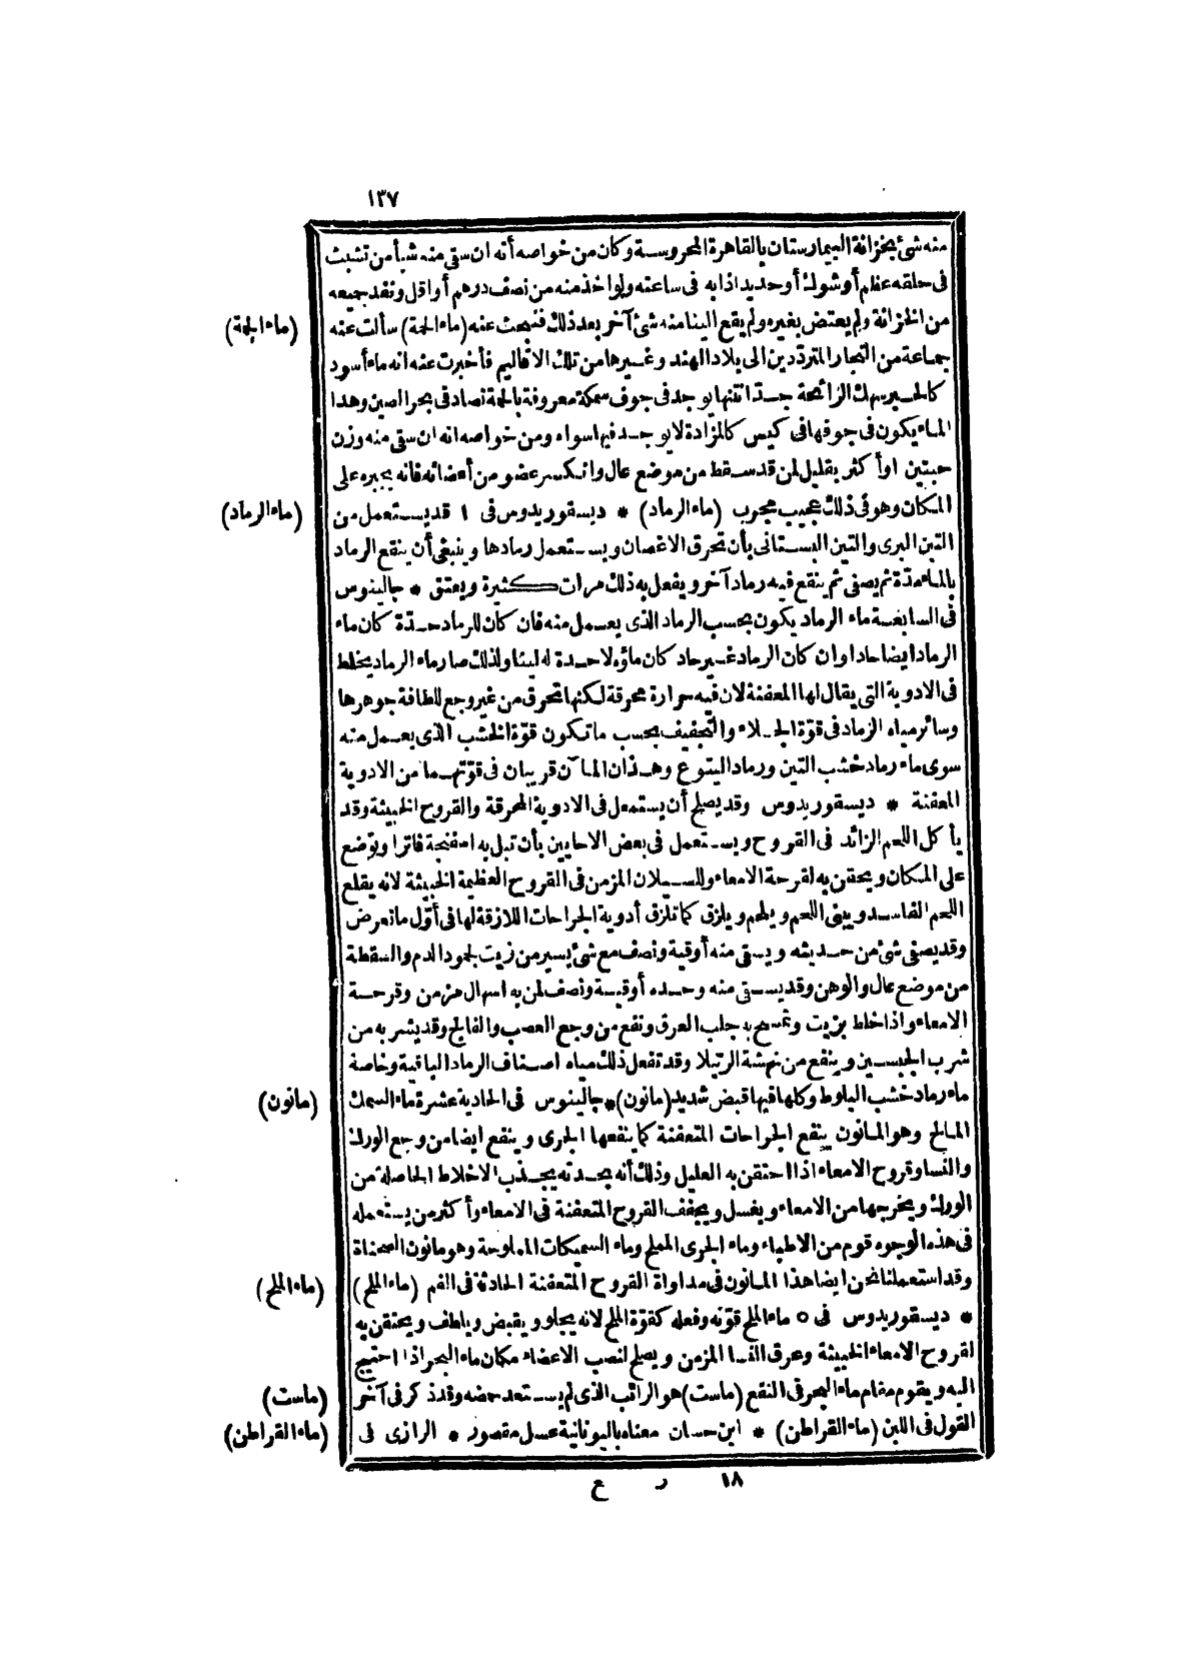 ١٣٧
منه شئ بخزانة البيمارستان بالقاهرة المحروسة وكان من خواصه أنه ان سقى منه شيأ من تشبث
فى حلقه عظم أو شوك أو حديد اذابه فى ساعته ولو اخذ منه من نصف درهم أو اقل ونفد جميعه
من الخزانة ولم يعتض بغيره ولم يقع الينا منه شئ آخر بعد ذلك فنبحث عنه (ماء الجمة) سألت عنه
(ماء الجمة)
جماعة من التجار المتردّدين الى بلاد الهند وغيرها من تلك الاقاليم فأخبرت عنه انه ماء أسود
كالحبر سهك الرائحة جدا تنها يوجد فى جوف سمكة معروفة بالجمة تصاد فى بحر الصين وهذا
الماء يكون فى جوفها فى كيس كالمزادة لا يوجد فيها سواه ومن خواصه انه ان سقى منه وزن
حبتين اوأ كثر بقليل لمن قد سقط من موضع عال وانكسر عضو من أعضائه فانه يجبره على
المكان وهو فى ذلك عجيب مجرب (ماء الرماد) * ديسقوريدوس فى ١ قد يستعمل من
(ماء الرماد)
التين البرى والتين البستانى بأن تحرق الاغصان ويستعمل رمادها وينبغى أن ينقع الرماد
بالماء مدّة ثم يصفى ثم ينقع فيه رماد آخر ويفعل به ذلك مرات كثيرة ويعتق * جالينوس
فى السابعة ماء الرماد يكون بحسب الرماد الذى يعمل منه فان كان للرماد حدّة كان ماء
الرماد ايضا حادا وان كان الرماد غير حاد كان ماؤه لا حدة له لينا ولذلك صار ماء الرماد يخلط
فى الادوية التى يقال لها المعفنة لان فيه حرارة محرقة لكنها تحرق من غير وجع للطافة جوهرها
وسائر مياه الرماد فى قوّة الجلاء والتجفيف بحسب ما تكون قوّة الخشب الذى يعمل منه
سوى ماء رماد خشب التين ورماد اليتوع وهذان الماآن قريبان فى قوّتهما من الادوية
المعفنة * ديسقوريدوس وقد يصلح أن يستعمل فى الادوية المحرقة والقروح الخبيثة وقد
يأ كل اللحم الزائد فى القروح ويستعمل فى بعض الاحايين بأن تبل به اسفنجة فاترا وتوضع
على المكان ويحقن به لقرحة الامعاء وللسيلان المزمن فى القروح العظيمة الخبيثة لانه يقلع
اللحم الفاسد ويبنى اللحم ويلحم ويلزق كما تلزق أدوية الجراحات اللازقة لها فى أوّل ما تعرض
وقد يصفى شئ من حديثه ويسقى منه أوقية ونصف مع شئ يسير من زيت لجمود الدم والسقطة
من موضع عال والوهن وقد يسقى منه وحده أوقية ونصف لمن به اسهال مزمن وقرحة
الامعاء واذا خلط بزيت وتمسح به جلب العرق ونفع من وجع العصب والفالج وقد يشربه من
شرب الجبسين وينفع من نهشة الرتيلا وقد تفعل ذلك مياه اصناف الرماد الباقية وخاصة
ماء رماد خشب البلوط وكلها فيها قبض شديد (مانون) * جالينوس فى الحادية عشرة ماء السمك
(مانون)
المالح وهو المانون ينفع الجراحات المتعفنة كما ينفعها الجرى وينفع ايضا من وجع الورك
والنسا وقروح الامعاء اذا احتقن به العليل وذلك أنه بحدته يجذب الاخلاط الحاصلة من
الورك ويخرجها من الامعاء ويغسل ويجفف القروح المتعفنة فى الامعاء وأكثر من يستعمله
فى هذه الوجوه قوم من الاطباء وماء الجرى المملح وماء السميكات المملوحة وهو مانون الصحناة
وقد استعملنا نحن ايضا هذا المانون فى مداواة القروح المتعفنة الحادثة فى الفم (ماء الملح)
(ماء الملح)
* ديسقوريدوس فى ٥ ماء الملح قوّته وفعله كقوّة الملح لانه يجلو ويقبض ويلطف ويحتقن به
لقروح الامعاء الخبيثة وعرق النسا المزمن ويصلح لنصب الاعضاء مكان ماء البحر اذا احتيج
اليه ويقوم مقام ماء البحر فى النفع (ماست) هو الرائب الذى لم يستعد حمضه وقد ذكر فى آخر
(ماست)
القول فى اللبن (ماء القراطن) * ابن حسان معناه باليونانية عسل مقصور * الرازى فى
(ماء القراطن)
١٨ ر ع